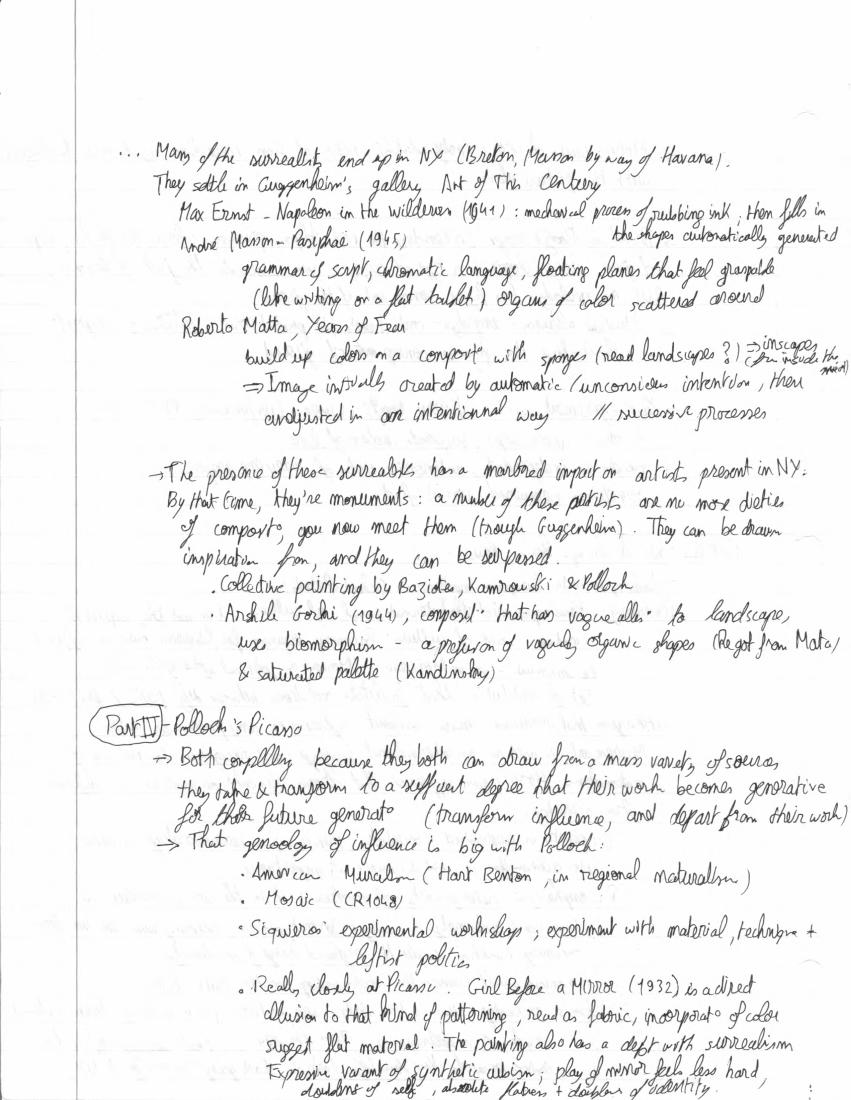 ... Many of the surrealists end up in NY (Breton, Masson by way of Havana).
They settle in Guggenheim's gallery Art of This Century
Max Ernst - Napoleon in the wilderness (1941) : mechanical process of rubbing ink, then fills in
the shapes automatically generated
André Masson - Pasiphaë (1945)
grammar of script, chromatic language, floating planes that feel graspable
(like writing on a flat tablet) organs of color scattered around
Roberto Matta, Years of Fear
build up colors on a composit° with sponges (read landscapes ?) ⇒ inscapes
(from inside the mind)
⇒ Image initially created by automatic / unconscious intention, then
readjusted in an intentionnal way // successive processes
→ The presence of these surrealists has a marked impact on artists present in NY.
By that time, they're monuments : a number of these artists are no more dieties
of composit°, you now meet them (trough Guggenheim). They can be drawn
inspiration from, and they can be surpassed.
. Collective painting by Baziotes, Kamrowski & Polloch
. Arshile Gorki (1944), composit° that has vague allus° to landscape,
uses biomorphism - a profusion of vaguely organic shapes (He got from Mata)
& saturated palette (Kandinsky)
Part IV - Polloch's Picasso
→ Both compellley because they both can draw from a mass variety of sources,
they take & transform to a sufficent degree that their work becomes generative
for those future generat° (transform influence, and depart from their work)
→ That geneology of influence is big with Polloch :
. American Muralism (Hart Benton, in regional naturalism)
. Mosaic (CR1048)
. Siquieros' experimental workshop, experiment with material, technique +
leftist politics
. Really closely at Picasso. Girl Before a Mirror (1932) is a direct
allusion to that kind of patterning, read as fabric, incorporat° of color
suggest flat material. The painting also has a debt with surrealism
Expressive variant of synthetic cubism; play of mirror feels less hard,
doubling of self, absolute flatness + doubling of identity.